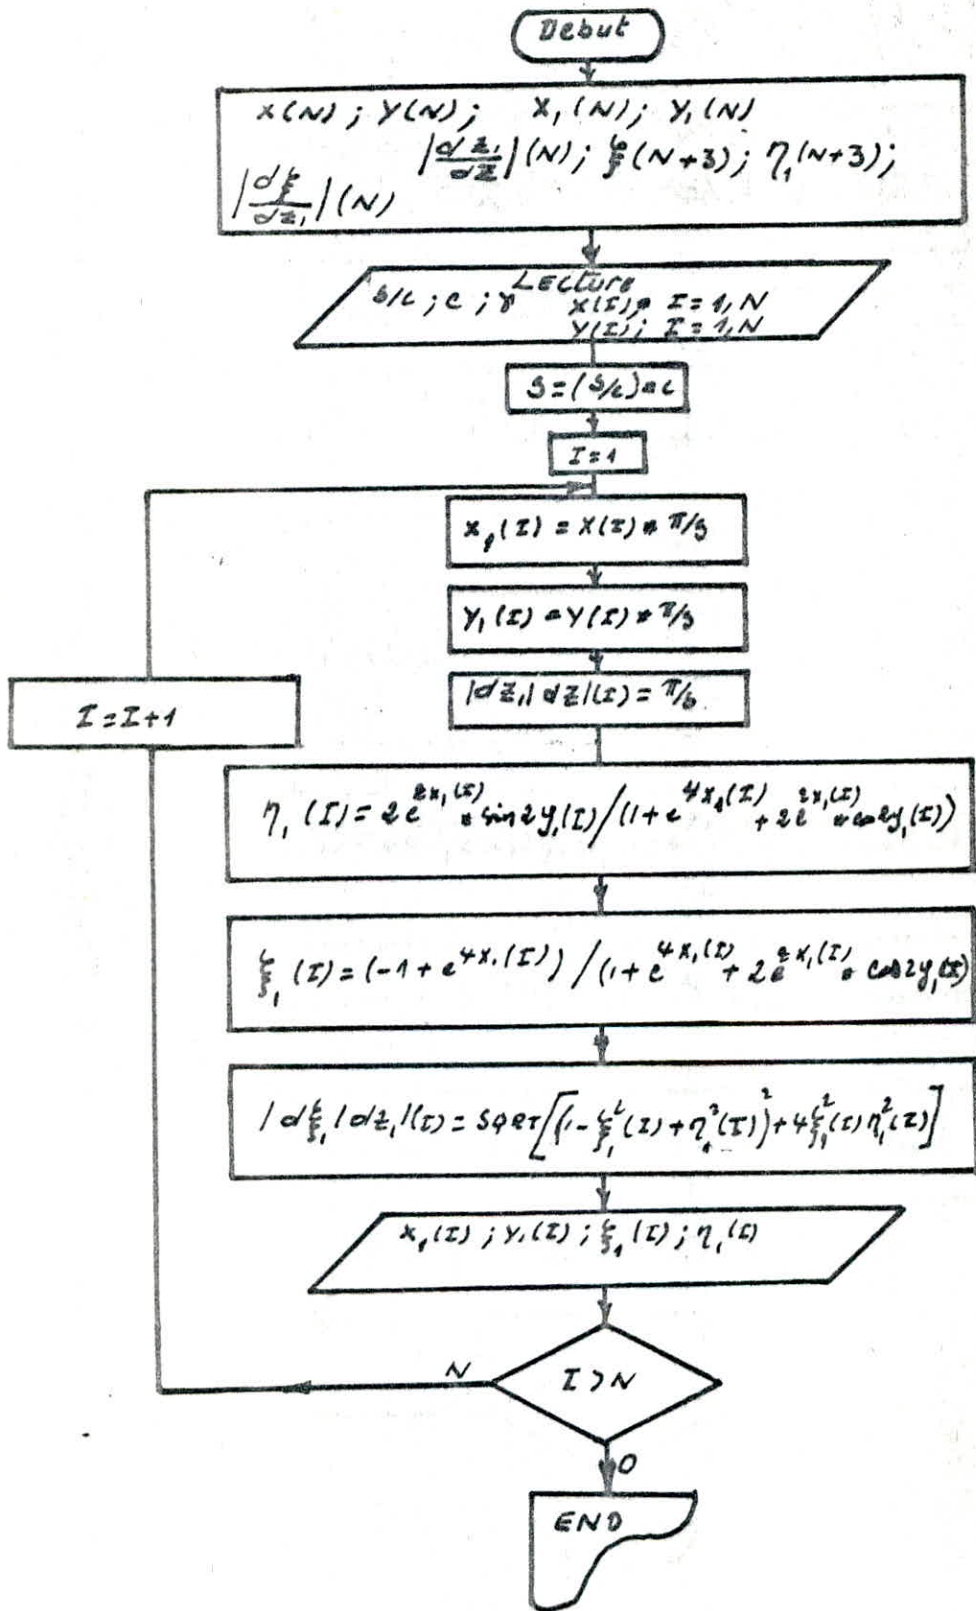 Debut
X(N) ; Y(N) ; X₁(N) ; Y₁(N)
|dz₁/dz|(N) ; ξ(N+3) ; η₁(N+3) ;
|dξ/dz₁|(N)
LECTURE
s/c ; c ; γ X(I); I = 1, N
Y(I); I = 1, N
s = (s/c) * c
I = 1
x₁(I) = X(I) * π/s
Y₁(I) = Y(I) * π/s
|dz₁|dz|(I) = π/s
I = I + 1
η₁(I) = 2e^{2x₁(I)} * sin2y₁(I) / (1 + e^{4x₁(I)} + 2e^{2x₁(I)} * cos2y₁(I))
ξ₁(I) = (-1 + e^{4x₁(I)}) / (1 + e^{4x₁(I)} + 2e^{2x₁(I)} * cos2y₁(I)
|dξ₁|dz₁|(I) = SQRT[(1 - ξ₁²(I) + η₁²(I))² + 4ξ₁²(I) η₁²(I)]
x₁(I) ; Y₁(I) ; ξ₁(I) ; η₁(I)
N
I > N
O
END